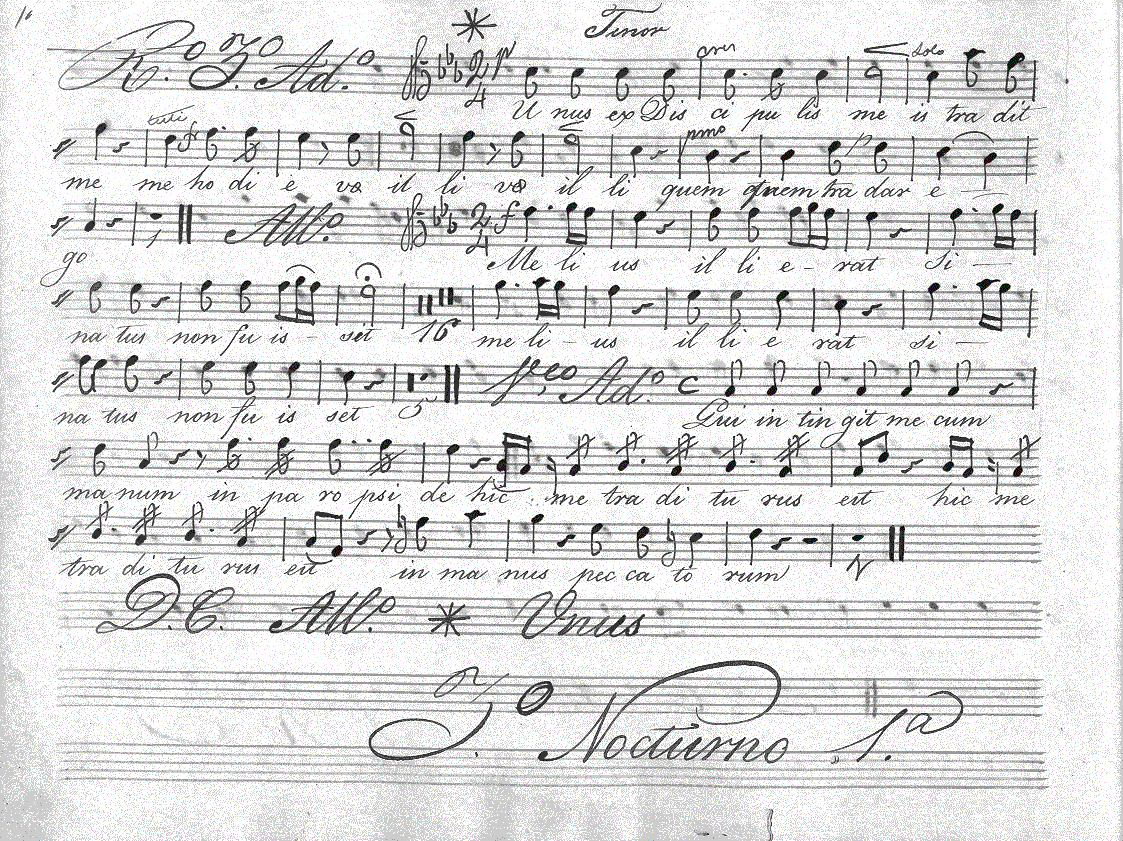 16
Tenor
R.o 3.o Ad.o 2/4 p cres solo
U nus ex Dis ci pu lis me is tra dit
tuti f pmo p
me me ho di e vœ il li væ il li quem quem tra dar e
go All.o 2/4 f Me li us il li e - rat Si
na tus non fu is - set 16 me li - us il li e rat si
na tus non fu is set 5 Ad.o C Qui in tin git me cum
ma num in pa ro psi de hic me tra di tu rus est hic me
tra di tu rus est in ma nus pec ca to rum
D.C. All.o Unus
3.o Nocturno 1.a